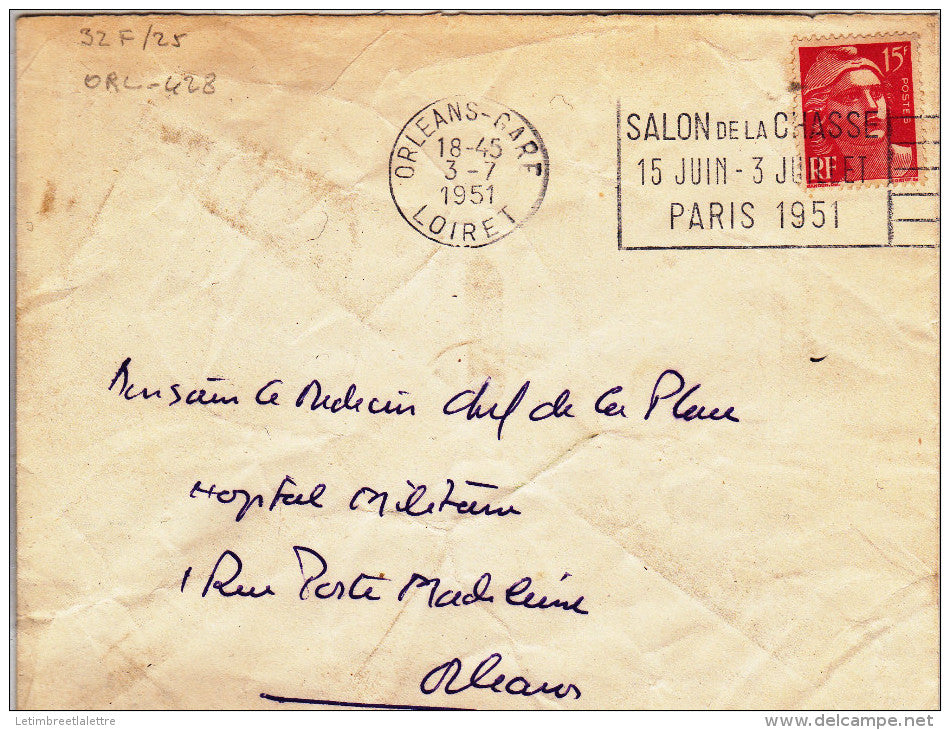 32 F/25
ORL-428
ORLEANS-GARE
18-45
3-7
1951
LOIRET
SALON DE LA CHASSE
15 JUIN - 3 JUILLET
PARIS 1951
15F
POSTES
RF
Monsieur le Medecin Chef de la Place
Hopital Militaire
1 Rue Porte Madeleine
Orleans
Letimbreetlalettre
www.delcampe.net